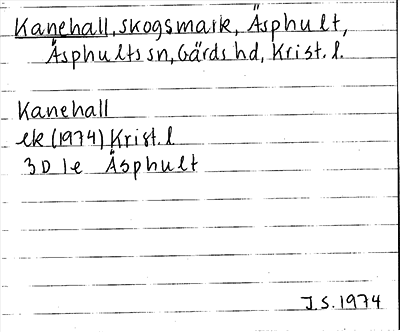 Kanehall, skogsmark, Äsphult,
Äsphults sn, Gärds hd, Krist. l.
Kanehall
ek (1974) Krist. l
3D 1e Äsphult
J.S. 1974